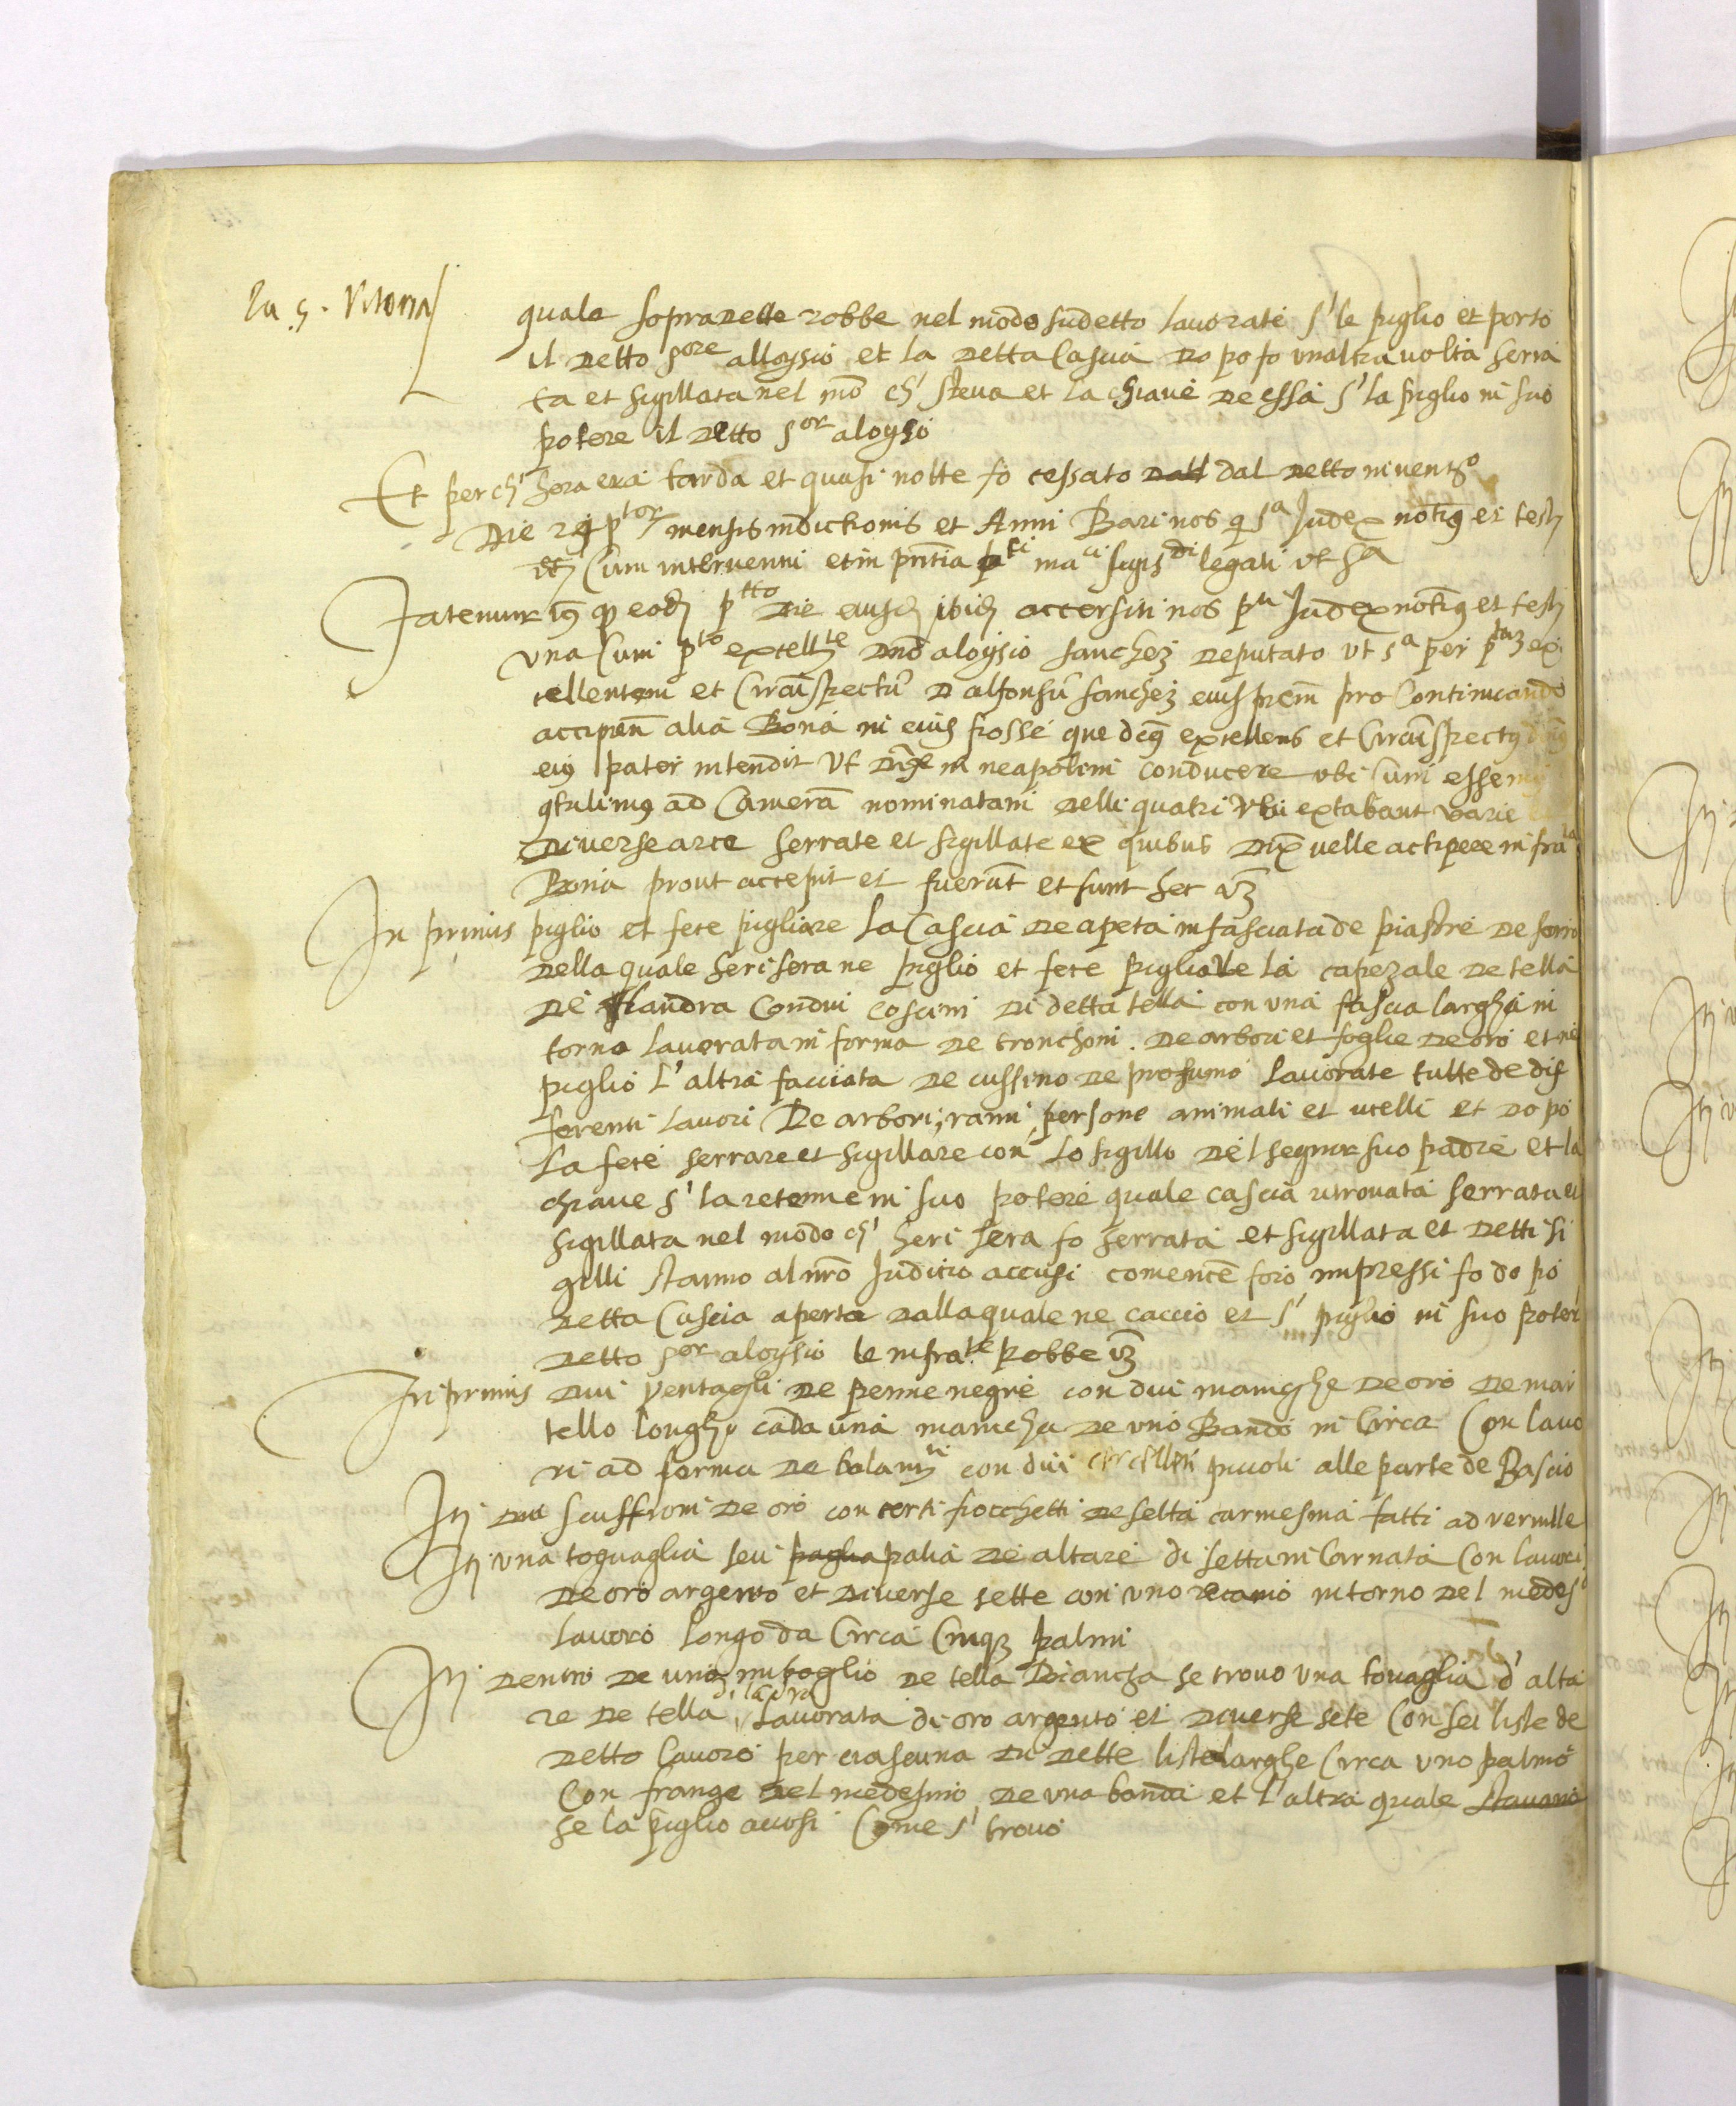 la S. Vitoria
quale sopradette robbe nel modo sudetto lavorate s' le piglio et porto
il detto s.ore alloysio et la detta Cascia dopo fo unaltra volta serra
ta et sigillata nel mō ch' steva et la chiave de essa s' la piglio in suo
potere il detto s.or aloysio
Et per ch' hora era tarda et quasi notte fo cessato dall dal detto invent.o
Die 24 p.tor mensis indictionis et Anni Bari nos q s.a Judex not.us et test
Cum interventu et in pn̄tia p.ti ma.ci sigis.di legati ut s.a
Fatemur q eod p.tto die eiusd ibid accersiti nos p.ti Judex not.us et test
una Cum p.to excell.te dno aloysio sanchez deputato ut s.a per p.tum ex
cellentem et Circūspectū D alfonsū sanchez eius prem pro Continuando
accipien alia Bona in eius posse que dcus excellens et Circūspectus
eius pater intendit ut dix in neapolim conducere ubi Cum essemus
ad Camerā nominatam delli quatri ubi extabant varie
Diverse arce serrate et sigillate ex quibus dix velle accipere infra
Bona prout accepit et fuerūt et sunt hec vz
In primis piglio et fece pigliare la Cascia de apeta infasciata de piastre de ferro
della quale heri sera ne piglio et fece pigliare la capezale de tella
de flandra Con dui coscini di detta tella con una fascia largha in
torno laverata in forma de tronchoni de arbori et foglie de oro et ne
piglio l'altra facciata de cussino de profumo lavorate tutte de dif
ferenti lavori De arbori, rami, persone animali et ucelli et dopo
La fece serrare et sigillare con lo sigillo del segnor suo padre et la
chiave s' la retenne in suo potere quale cascia ritrovata serrata et
sigillata nel modo ch' heri sera fo serrata et sigillata et detti si
gilli stanno al nrō Judicio accusi comence foro impressi fo dopo
detta Cascia aperta dalla quale ne caccio et s' piglio in suo poter
detto s.or aloysio le infra.te robbe vz
In primis dui ventagli de penne negre con dui maniche de oro de mar
tello longhi cadauna manicha de uno Bando in Circa Con lavo
ri ad forma de con dui piccoli alle parte de Bascio
It due scuffioni de oro con certi fiocchetti de setta carmesina fatti ad vernille
It una toguaglia seu paglia palia de altare di setta incarnata Con lavori
de oro argento et diverse sette con uno recamo intorno del medes.o
lavoro longo da Circa Cinq palmi
It dentro de uno imboglio de tella biancha se trovo una tovaglia d' alta
re de tella lavorata di oro argento et diverse sete Con sei liste de
detto lavoro per ciascuna di dette liste larghe Circa uno palmo
Con frange del medesmo de una banda et l'altra quale stavano
se la piglio accosi Come s' trovo